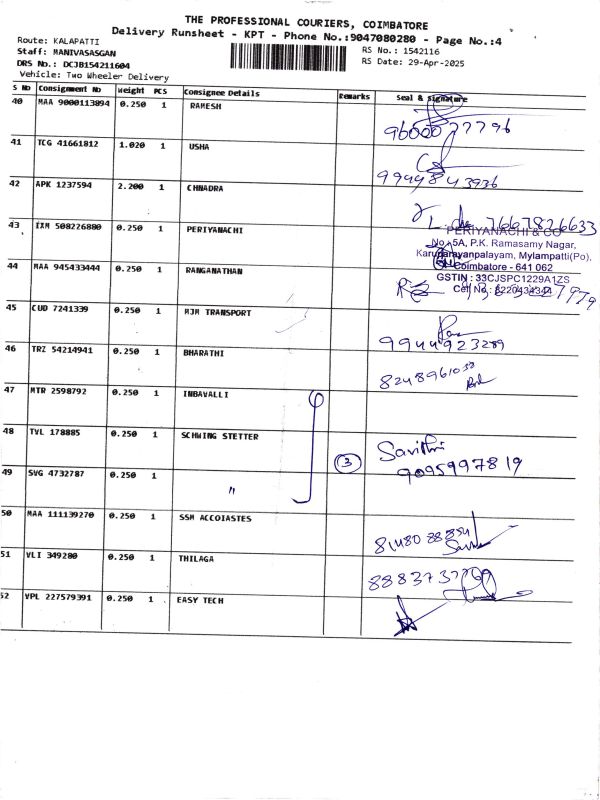 THE PROFESSIONAL COURIERS, COIMBATORE
Delivery Runsheet - KPT - Phone No.:9047080280 - Page No.:4
Route: KALAPATTI
Staff: MANIVASASGAN
DRS No.: DCJB154211604
Vehicle: Two Wheeler Delivery
RS No.: 1542116
RS Date: 29-Apr-2025
S No Consignment No Weight PCS Consignee Details Remarks Seal & signature
40 MAA 9000113894 0.250 1 RAMESH
41 TCG 41661812 1.020 1 USHA
9994843936
42 APK 1237594 2.200 1 CHNADRA
7667826633
43 IXM 508226880 0.250 1 PERIYANACHI
PERIYANACHI & CO
No.-5A, P.K. Ramasamy Nagar,
Karunarayanpalayam, Mylampatti(Po).
Coimbatore - 641 062
GSTIN : 33CJSPC1229A1ZS
44 MAA 945433444 0.250 1 RANGANATHAN
45 CUD 7241339 0.250 1 MJM TRANSPORT
9944923289
46 TRZ 54214941 0.250 1 BHARATHI
8248961038
47 MTR 2598792 0.250 1 INBAVALLI
48 TVL 178885 0.250 1 SCHWING STETTER
3 Savithri
9095997819
49 SVG 4732787 0.250 1 "
50 MAA 111139270 0.250 1 SSM ACCOIASTES
51 VLI 349280 0.250 1 THILAGA
52 VPL 227579391 0.250 1 EASY TECH